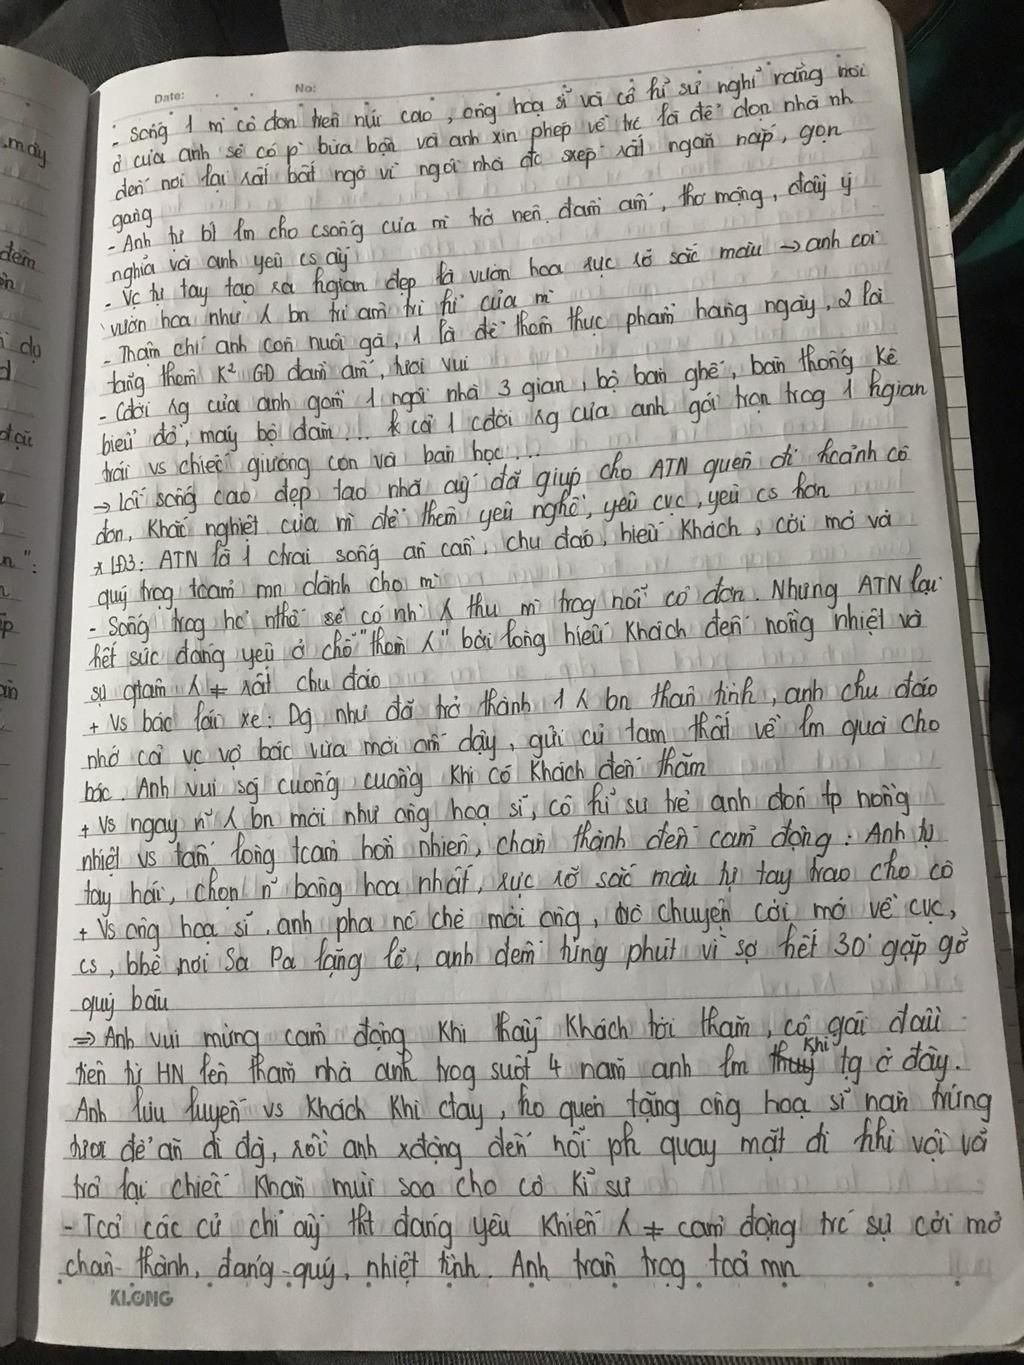 Date: . . No:
- Sống 1 m cô đơn trên núi cao, ông hoạ sĩ và cô kĩ sư nghĩ rằng nơi
ở của anh sẽ có p bừa bộn và anh xin phép về trc là để dọn nhà nh
đến nơi lại rất bất ngờ vì ngôi nhà đc sxep rất ngăn nắp, gọn
gàng
- Anh tự bt lm cho csống của m trở nên đầm ấm, thơ mộng, đầy ý
nghĩa và anh yêu cs ấy
- Vc tự tay tạo ra kgian đẹp là vườn hoa rực rỡ sắc màu → anh coi
vườn hoa như λ bn tri âm tri kỉ của m
- Thậm chí anh còn nuôi gà, 1 là để thêm thực phẩm hàng ngày, 2 là
tăng thêm K² GĐ đầm ấm, tươi vui
- Cđời rg của anh gồm 1 ngôi nhà 3 gian, bộ bàn ghế, bản thống kê
biểu đồ, máy bộ đàm... k cả 1 cđời rg của anh gói trọn trog 1 kgian
trái vs chiếc giường con và bàn học...
→ Lối sống cao đẹp tao nhã ấy đã giúp cho ATN quên đi hcảnh cô
đơn, khắc nghiệt của m để thêm yêu nghề, yêu cvc, yêu cs hơn
* LĐ3: ATN là 1 ctrai sống ân cần, chu đáo, hiếu khách, cởi mở và
quý trọg tcảm mn dành cho m
- Sống trog hc nthế sẽ có nh λ thu m trog nỗi cô đơn. Nhưng ATN lại
hết sức đáng yêu ở chỗ "thèm λ" bởi lòng hiếu khách đến nồng nhiệt và
sự qtâm λ ≠ rất chu đáo
+ Vs bác lái xe: Dg như đã trở thành 1 λ bn thân tình, anh chu đáo
nhớ cả vc vợ bác vừa mới ấm dậy, gửi củ tam thất về lm quà cho
bác. Anh vui sg cuống cuồng khi có khách đến thăm
+ Vs ngay n~ λ bn mới như ông hoạ sĩ, cô kĩ sư trẻ anh đón tp nồng
nhiệt vs tấm lòng tcảm hồn nhiên, chân thành đến cảm động: Anh tự
tay hái, chọn n~ bông hoa nhất, rực rỡ sắc màu tự tay trao cho cô
+ Vs ông hoạ sĩ, anh pha nc chè mời ông, trò chuyện cởi mở về cvc,
cs, bbè nơi Sa Pa lặng lẽ, anh đếm từng phút vì sợ hết 30' gặp gỡ
quý báu
⇒ Anh vui mừng cảm động khi thấy khách tới thăm, cô gái đầu
tiên từ HN lên thăm nhà anh trog suốt 4 năm anh lm khí tg ở đây.
Anh lưu luyến vs khách khi ctay, ko quên tặng ông hoạ sĩ nàn trứng
tươi để ăn đi đg, rồi anh xđộng đến nỗi ph quay mặt đi khi vội vã
trả lại chiếc khăn mùi soa cho cô kĩ sư
- Tcả các cử chỉ ấy tht đáng yêu khiến λ ≠ cảm động trc sự cởi mở
chân thành, đáng quý, nhiệt tình. Anh trân trọg tcả mn
KLONG